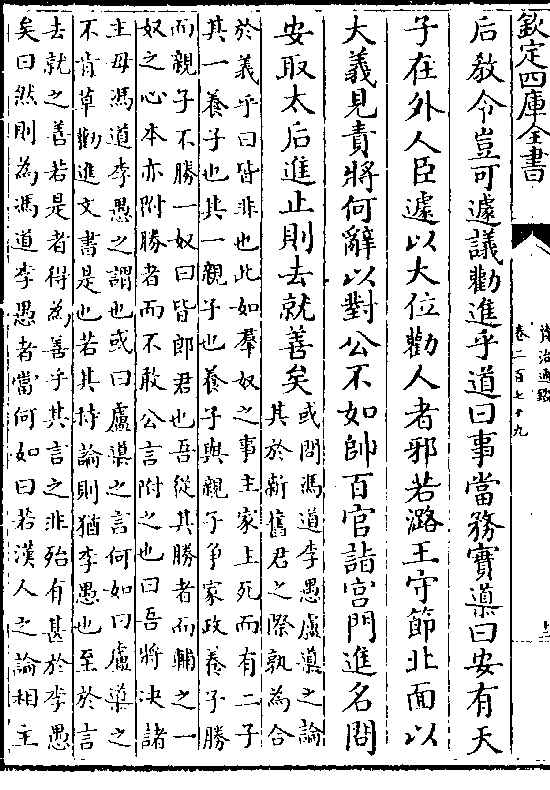 欽定四庫全書
資治通鑑
卷二百七十九
后教令豈可遽議勸進乎道曰事當務實導曰安有天
子在外人臣遽以大位勸人者邪若潞王守節北面以
大義見責將何辭以對公不如帥百官詣宮門進名問
安取太后進止則去就善矣
或問馮道李愚盧導之論
其於新舊君之際孰為合
於義乎曰皆非也此如羣奴之事主家上死而有二子
其一養子也其一親子也養子與親子爭家政養子勝
而親子不勝一奴曰皆郎君也吾從其勝者而輔之一
奴之心本亦附勝者而不敢公言附之也曰吾將决諸
主母馮道李愚之謂也或曰盧導之言何如曰盧導之
不肯草勸進文書是也若其持論則猶李愚也至於言
去就之善若是者得為善乎其言之非殆有甚於李愚
矣曰然則為馮道李愚者當何如曰若漢人之論相主